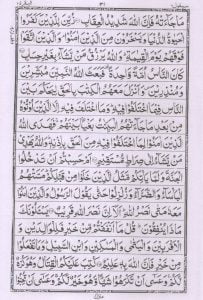 سيقول ٢ ٣١ البقرة ٢
مَا جَآءَتْهُ فَاِنَّ اللّٰهَ شَدِيْدُ الْعِقَابِ زُيِّنَ لِلَّذِيْنَ كَفَرُوا
الْحَيٰوةُ الدُّنْيَا وَيَسْخَرُوْنَ مِنَ الَّذِيْنَ اٰمَنُوْا وَالَّذِيْنَ اتَّقَوْا
فَوْقَهُمْ يَوْمَ الْقِيٰمَةِ وَاللّٰهُ يَرْزُقُ مَنْ يَّشَآءُ بِغَيْرِ حِسَابٍ
كَانَ النَّاسُ اُمَّةً وَّاحِدَةً فَبَعَثَ اللّٰهُ النَّبِيّٖنَ مُبَشِّرِيْنَ
وَمُنْذِرِيْنَ وَاَنْزَلَ مَعَهُمُ الْكِتٰبَ بِالْحَقِّ لِيَحْكُمَ بَيْنَ
النَّاسِ فِيْمَا اخْتَلَفُوْا فِيْهِ وَمَا اخْتَلَفَ فِيْهِ اِلَّا الَّذِيْنَ اُوْتُوْهُ
مِنْ بَعْدِ مَا جَآءَتْهُمُ الْبَيِّنٰتُ بَغْيًا بَيْنَهُمْ فَهَدَى اللّٰهُ
الَّذِيْنَ اٰمَنُوْا لِمَا اخْتَلَفُوْا فِيْهِ مِنَ الْحَقِّ بِاِذْنِهٖ وَاللّٰهُ يَهْدِيْ
مَنْ يَّشَآءُ اِلٰى صِرَاطٍ مُّسْتَقِيْمٍ اَمْ حَسِبْتُمْ اَنْ تَدْخُلُوا
الْجَنَّةَ وَلَمَّا يَاْتِكُمْ مَّثَلُ الَّذِيْنَ خَلَوْا مِنْ قَبْلِكُمْ مَسَّتْهُمُ
الْبَاْسَآءُ وَالضَّرَّآءُ وَزُلْزِلُوْا حَتّٰى يَقُوْلَ الرَّسُوْلُ وَالَّذِيْنَ اٰمَنُوْا
مَعَهٗ مَتٰى نَصْرُ اللّٰهِ اَلَآ اِنَّ نَصْرَ اللّٰهِ قَرِيْبٌ يَسْـَٔلُوْنَكَ
مَاذَا يُنْفِقُوْنَ قُلْ مَآ اَنْفَقْتُمْ مِّنْ خَيْرٍ فَلِلْوَالِدَيْنِ وَ
الْاَقْرَبِيْنَ وَالْيَتٰمٰى وَالْمَسٰكِيْنِ وَابْنِ السَّبِيْلِ وَمَا تَفْعَلُوْا
مِنْ خَيْرٍ فَاِنَّ اللّٰهَ بِهٖ عَلِيْمٌ كُتِبَ عَلَيْكُمُ الْقِتَالُ وَهُوَ كُرْهٌ
لَّكُمْ وَعَسٰٓى اَنْ تَكْرَهُوْا شَيْـًٔا وَّهُوَ خَيْرٌ لَّكُمْ وَعَسٰٓى اَنْ تُحِبُّوْا